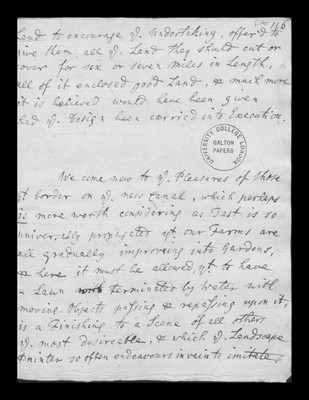 Land to encourage yᵉ. Undertaking, offer'd to
give them all yᵉ. Land they should cut or
cover for six or seven miles in Length,
all of it enclosed good Land, & much more
it is believed would have been given
had yᵉ. Design been carried into Execution.
UNIVERSITY COLLEGE LONDON
GALTON
PAPERS
We come now to yᵉ. Pleasures of those
yt border on yᵉ. new Canal, which perhaps
is more worth considering as Tast is so
universally propagated yt our Farms are
all gradually improving into Gardens,
& here it must be allowed, yt to have
a Lawn terminated by Water with
moving Objects passing & repassing upon it,
is a Finishing to a Scene of all others
yᵉ. most desireable, & which yᵉ. Landscape
Painter so often endeavours in vain to imitate.